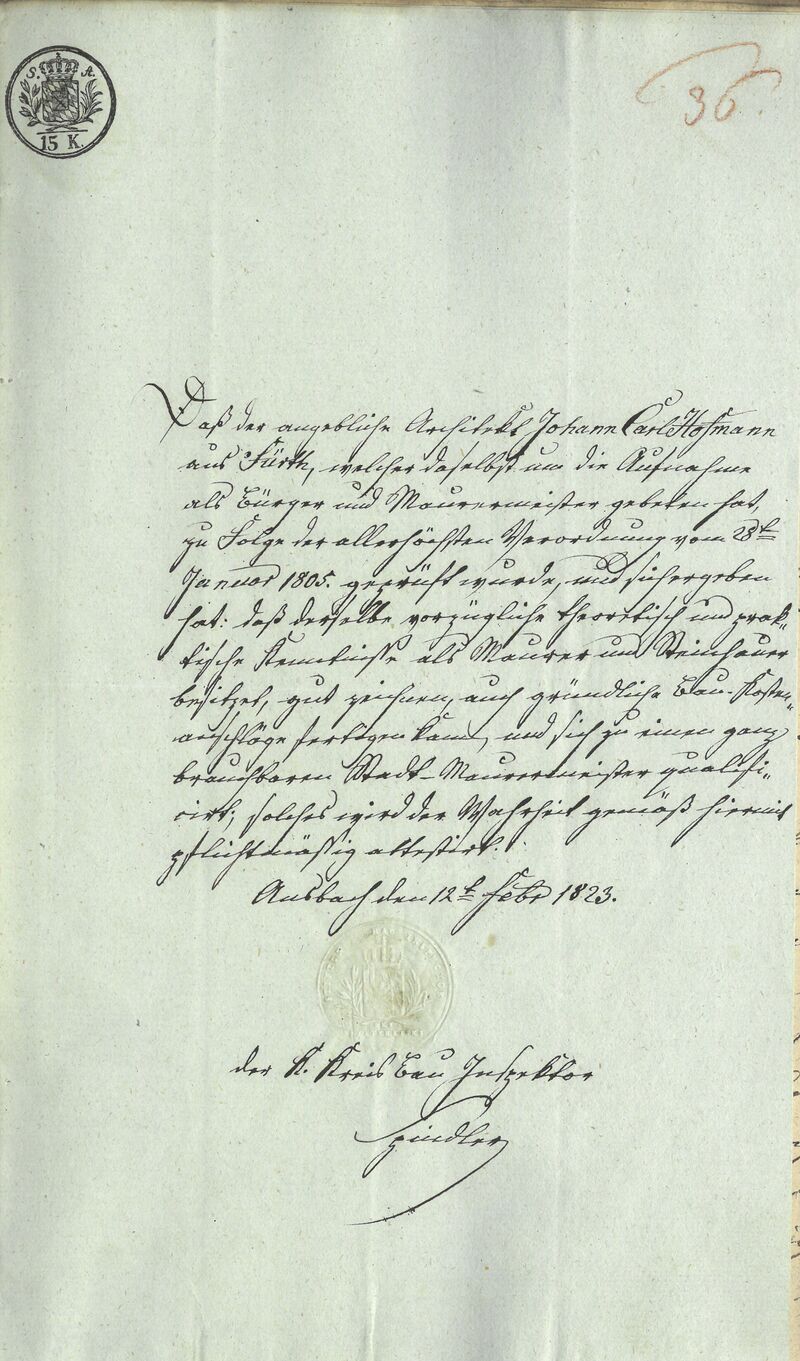 S. A.
15 K.
36.
Daß der angebliche Architekt Johann Carl Hofmann
aus Fürth, welcher daselbst um die Aufnahme
als Bürger und Maurermeister gebeten hat,
zu Folge der allerhöchsten Verordnung vom 28t
Januar 1805. geprüft wurde, und sich ergeben
hat: daß derselbe vorzügliche theoretisch und prak-
tische Kenntniße als Maurer und Steinhauer
besitzet, gut zeichnen, auch gründliche Bau-Kosten-
anschläge fertigen kann, und sich zu einen ganz
brauchbaren Stadt-Maurermeister qualifi-
cirt; solches wird der Wahrheit gemäß hiermit
pflichtmäßig attestirt.
Ansbach den 12t Febr 1823.
der K. Kreis Bau Inspektor
Spindler